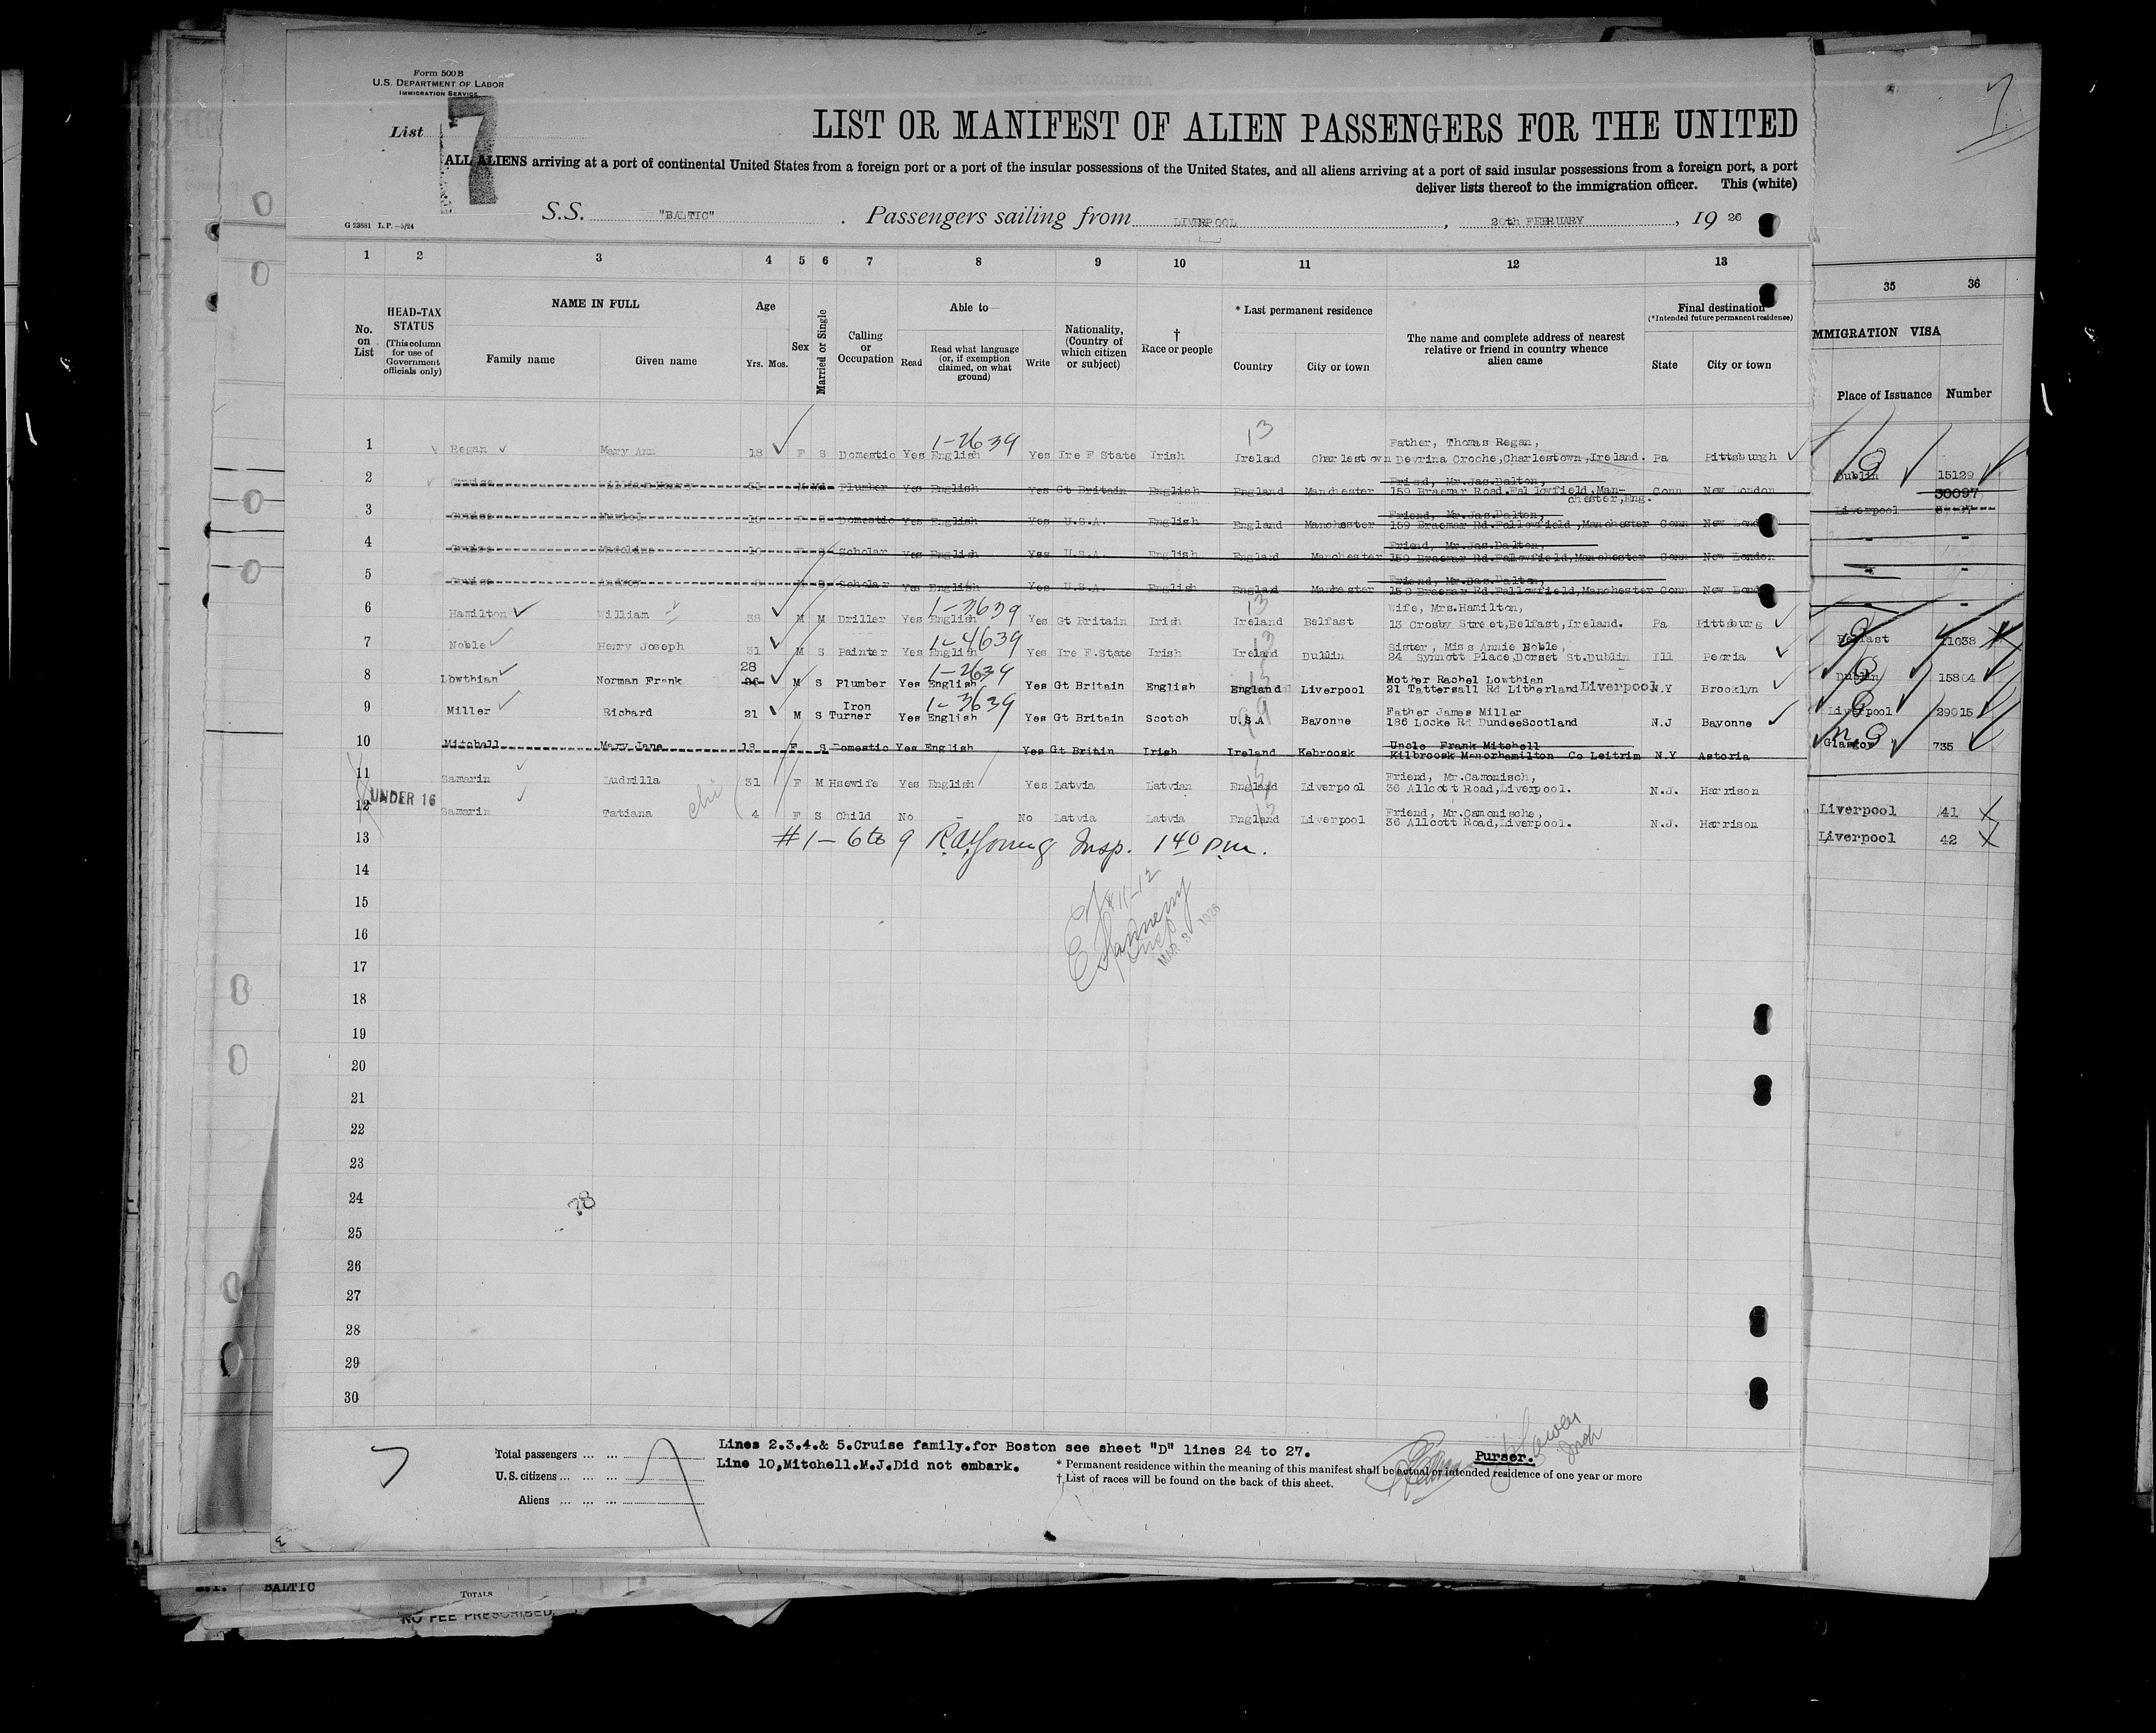 Form 500B
U.S. DEPARTMENT OF LABOR
IMMIGRATION SERVICE
List 7
LIST OR MANIFEST OF ALIEN PASSENGERS FOR THE UNITED
ALL ALIENS arriving at a port of continental United States from a foreign port or a port of the insular possessions of the United States, and all aliens arriving at a port of said insular possessions from a foreign port, a port
deliver lists thereof to the immigration officer. This (white)
S.S. "BALTIC" . Passengers sailing from LIVERPOOL , 20th FEBRUARY , 19 26
G 23881 L.P.—5/24
1 2 3 4 5 6 7 8 9 10 11 12 13 35 36
No. on List
HEAD-TAX STATUS (This column for use of Government officials only)
NAME IN FULL
Family name Given name
Age
Yrs. Mos.
Sex
Married or Single
Calling or Occupation
Able to—
Read
Read what language (or, if exemption claimed, on what ground)
Write
Nationality, (Country of which citizen or subject)
† Race or people
* Last permanent residence
Country City or town
The name and complete address of nearest relative or friend in country whence alien came
Final destination
(*Intended future permanent residence)
State City or town
IMMIGRATION VISA
Place of Issuance Number
1-2639 13 Father, Thomas Regan,
1 Regan Mary Ann 18 F S Domestic Yes English Yes Ire F State Irish Ireland Charlestown Devrina Croche,Charlestown,Ireland. Pa Pittsburgh Dublin 15129
Friend, Mr.Jas.Dalton,
2 Cruise William Henry 51 M Plumber Yes English Yes Gt Britain English England Manchester 159 Braemar Road.Fallowfield,Man-chester,Eng. Conn New London Liverpool 30097
Friend, Mr.Jas.Dalton,
3 Cruise Muriel F S Domestic Yes English Yes U.S.A. English England Manchester 159 Braemar Rd.Fallowfield,Manchester Conn New London
Friend, Mr.Jas.Dalton,
4 Cruise Madeline 10 F S Scholar Yes English Yes U.S.A. English England Manchester 159 Braemar Rd.Fallowfield,Manchester Conn New London
Friend, Mr.Das.Dalton,
5 Cruise S Scholar Yes English Yes U.S.A. English England Manchester 159 Braemar Rd.Fallowfield,Manchester Conn New London
1-3639 13 Wife, Mrs.Hamilton,
6 Hamilton William 38 M M Driller Yes English Yes Gt Britain Irish Ireland Belfast 13 Crosby Street,Belfast,Ireland. Pa Pittsburg Belfast 1038
1-4639 13 Sister, Miss Annie Noble,
7 Noble Henry Joseph 31 M S Painter Yes English Yes Ire F.State Irish Ireland Dublin 24 Synnott Place,Dorset St.Dublin Ill Peoria Dublin 15804
28 1-2639 13 Mother Rachel Lowthian
8 Lowthian Norman Frank 36 M S Plumber Yes English Yes Gt Britain English England Liverpool 21 Tattersall Rd Litherland Liverpool N.Y Brooklyn Liverpool 29015
Iron 1-3639 Father James Miller
9 Miller Richard 21 M S Turner Yes English Yes Gt Britain Scotch U.S.A Bayonne 186 Locke Rd DundeeScotland N.J Bayonne Glasgow 735
Uncle Frank Mitchell
10 Mitchell Mary Jane 18 F S Domestic Yes English Yes Gt Britin Irish Ireland Kebroosk Kilbroosk Manorhamilton Co Leitrim N.Y Astoria
13 Friend, Mr.Camonisch,
11 Samarin Ludmilla 31 F M Hsewife Yes English Yes Latvia Latvian England Liverpool 36 Allcott Road,Liverpool. N.J. Harrison Liverpool 41
UNDER 16 13 Friend, Mr.Camonische,
12 Samarin Tatiana 4 F S Child No - No Latvia Latvia England Liverpool 36 Allcott Road,Liverpool. N.J. Harrison Liverpool 42
13 #1-6 to 9 R.A.Young Insp. 140 p.m.
14
15 #11-12
16
17 Insp MAR 3 1926
18
19
20
21
22
23
24 78
25
26
27
28
29
30
Total passengers ... ...
U.S. citizens ... ... ...
Aliens ... ... ...
Lines 2.3.4.& 5.Cruise family.for Boston see sheet "D" lines 24 to 27.
Line 10,Mitchell.M.J.Did not embark.
Purser.
* Permanent residence within the meaning of this manifest shall be actual or intended residence of one year or more
† List of races will be found on the back of this sheet.
BALTIC
TOTALS
NO FEE PRESCRIBED.